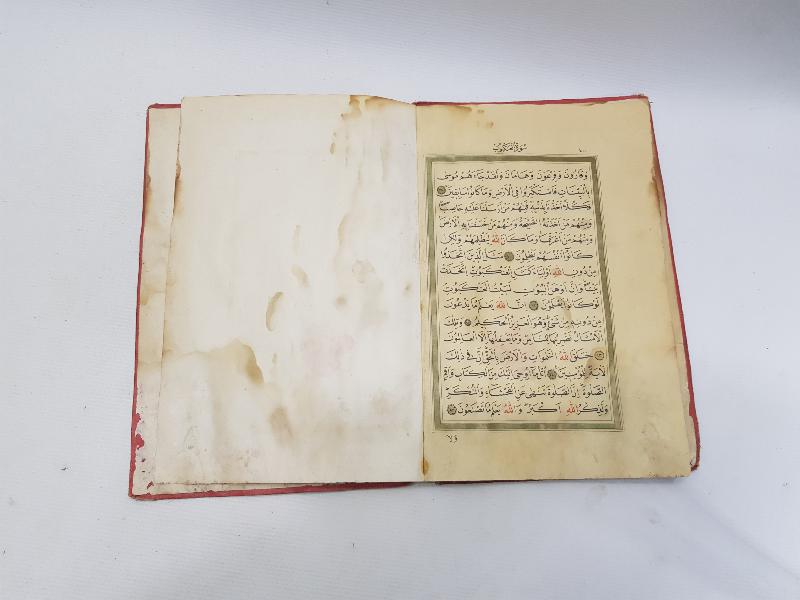 سورة العنكبوت
وَقَارُونَ وَفِرْعَوْنَ وَهَامَانَ وَلَقَدْ جَاءَهُمْ مُوسٰى
بِالْبَيِّنَاتِ فَاسْتَكْبَرُوا فِي الْاَرْضِ وَمَا كَانُوا سَابِقِينَ
فَكُلًّا اَخَذْنَا بِذَنْبِهِ فَمِنْهُمْ مَنْ اَرْسَلْنَا عَلَيْهِ حَاصِبًا
وَمِنْهُمْ مَنْ اَخَذَتْهُ الصَّيْحَةُ وَمِنْهُمْ مَنْ خَسَفْنَا بِهِ الْاَرْضَ
وَمِنْهُمْ مَنْ اَغْرَقْنَا وَمَا كَانَ اللهُ لِيَظْلِمَهُمْ وَلٰكِنْ
كَانُوا اَنْفُسَهُمْ يَظْلِمُونَ مَثَلُ الَّذِينَ اتَّخَذُوا
مِنْ دُونِ اللهِ اَوْلِيَاءَ كَمَثَلِ الْعَنْكَبُوتِ اِتَّخَذَتْ
بَيْتًا وَاِنَّ اَوْهَنَ الْبُيُوتِ لَبَيْتُ الْعَنْكَبُوتِ
لَوْ كَانُوا يَعْلَمُونَ اِنَّ اللهَ يَعْلَمُ مَا يَدْعُونَ
مِنْ دُونِهِ مِنْ شَيْءٍ وَهُوَ الْعَزِيزُ الْحَكِيمُ وَتِلْكَ
الْاَمْثَالُ نَضْرِبُهَا لِلنَّاسِ وَمَا يَعْقِلُهَا اِلَّا الْعَالِمُونَ
خَلَقَ اللهُ السَّمٰوَاتِ وَالْاَرْضَ بِالْحَقِّ اِنَّ فِي ذٰلِكَ
لَاٰيَةً لِلْمُؤْمِنِينَ اُتْلُ مَا اُوحِيَ اِلَيْكَ مِنَ الْكِتَابِ وَاَقِمِ
الصَّلٰوةَ اِنَّ الصَّلٰوةَ تَنْهٰى عَنِ الْفَحْشَاءِ وَالْمُنْكَرِ
وَلَذِكْرُ اللهِ اَكْبَرُ وَاللهُ يَعْلَمُ مَا تَصْنَعُونَ
وَلَا